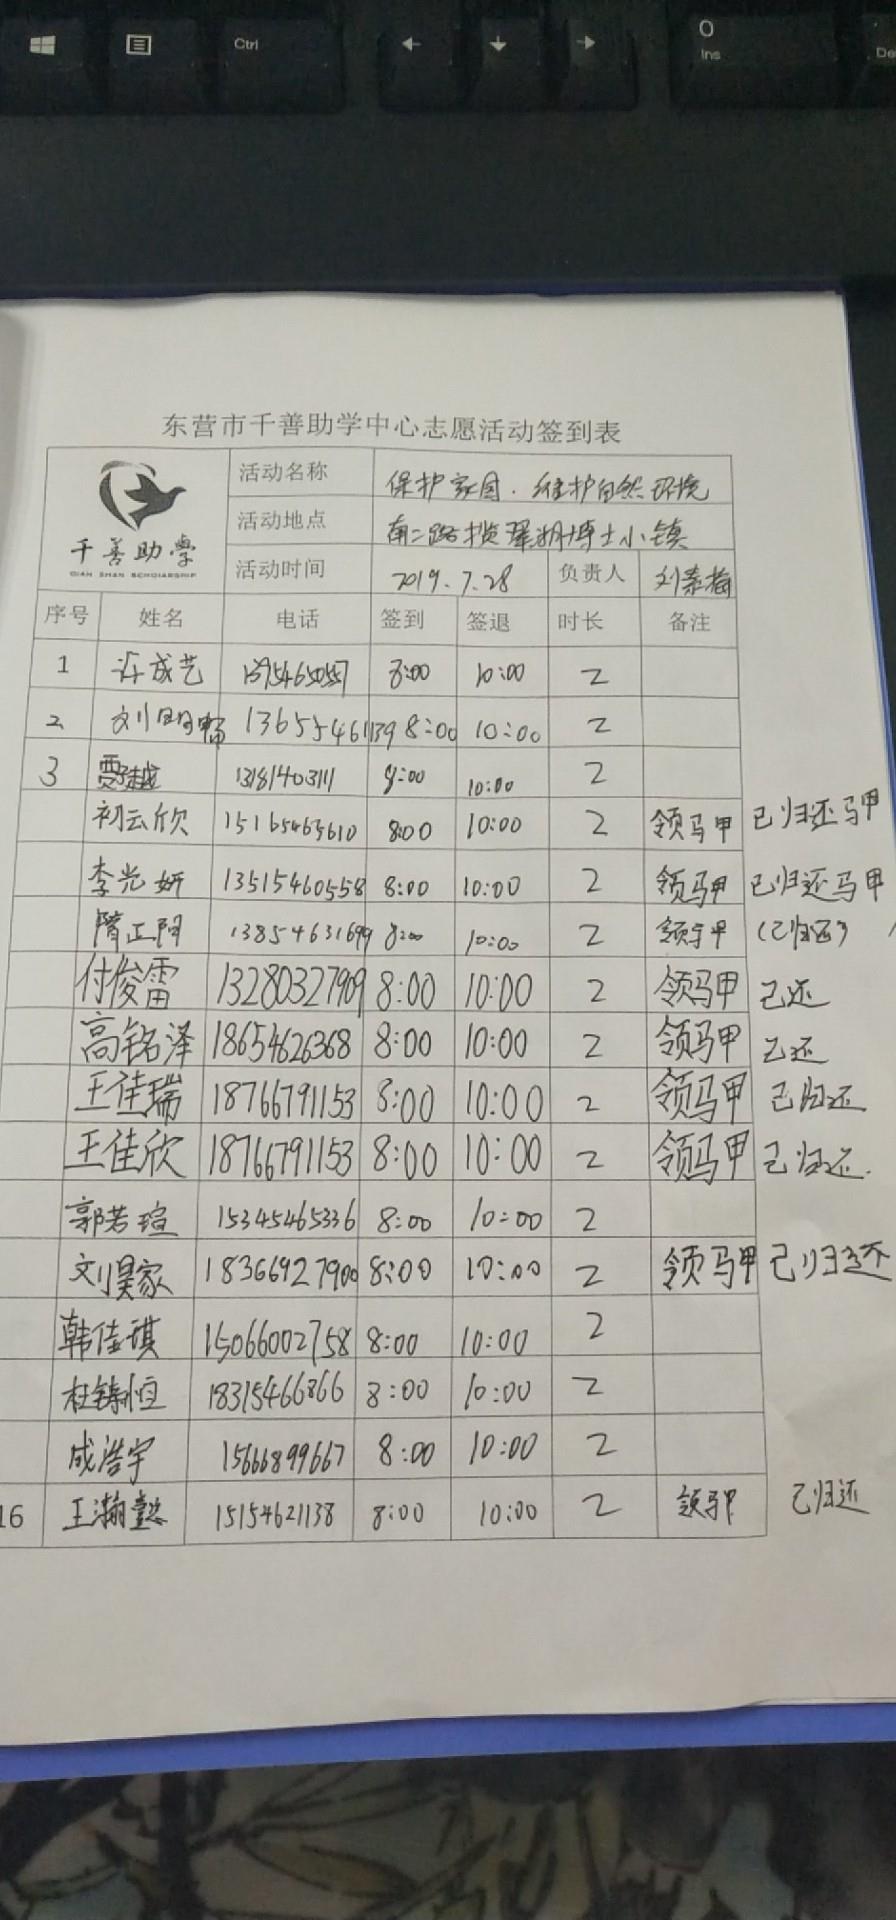 Ctrl
←
↓
→
0
Ins
De
东营市千善助学中心志愿活动签到表
千善助学
QIAN SHAN SCHOLARSHIP
活动名称 保护家园.维护自然环境
活动地点 南二路揽翠湖博士小镇
活动时间 2019.7.28 负责人
序号 姓名 电话 签到 签退 时长 备注
1 许成艺 8:00 10:00 2
2 刘明畅 13655461139 8:00 10:00 2
3 贾越 13181403111 8:00 10:00 2
初云欣 15165463610 8:00 10:00 2 领马甲 已归还马甲
李光妍 13515460558 8:00 10:00 2 领马甲 已归还马甲
隋正阳 13854631699 8:00 10:00 2 领马甲 (已归还)
付俊雷 13280327909 8:00 10:00 2 领马甲 已还
高铭泽 18654626368 8:00 10:00 2 领马甲 已还
王佳瑞 18766791153 8:00 10:00 2 领马甲 已归还
王佳欣 18766791153 8:00 10:00 2 领马甲 已归还.
郭若瑄 15345465336 8:00 10:00 2
刘昊家 18366927900 8:00 10:00 2 领马甲 已归还
韩佳琪 15066002758 8:00 10:00 2
杜铸恒 18315466866 8:00 10:00 2
成浩宇 15666899667 8:00 10:00 2
16 王瀚懿 15154621138 8:00 10:00 2 领马甲 已归还